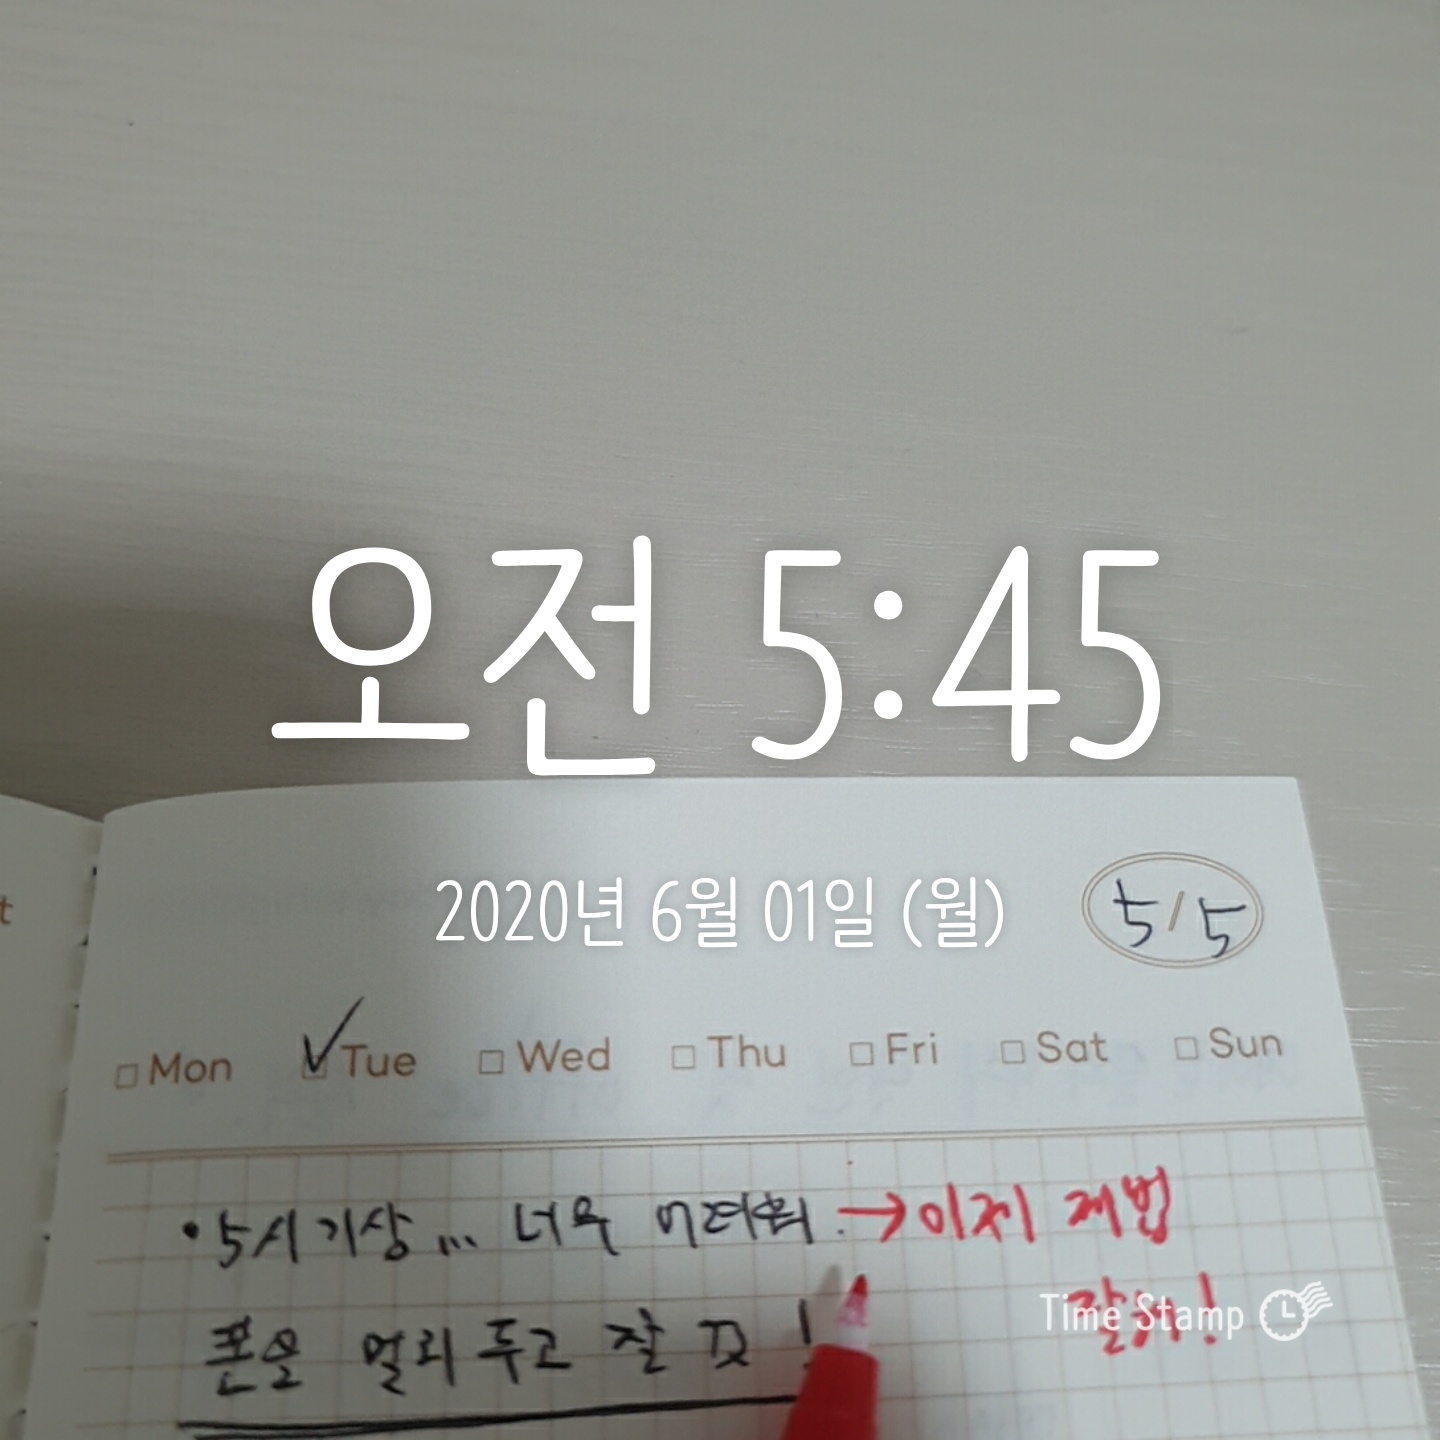 오전 5:45
2020년 6월 01일 (월)
5/5
t
Mon ✓Tue Wed Thu Fri Sat Sun
•5시기상... 너무 어려워. →이제 제법
잘해!
폰은 멀리 두고 잘 것!
Time Stamp